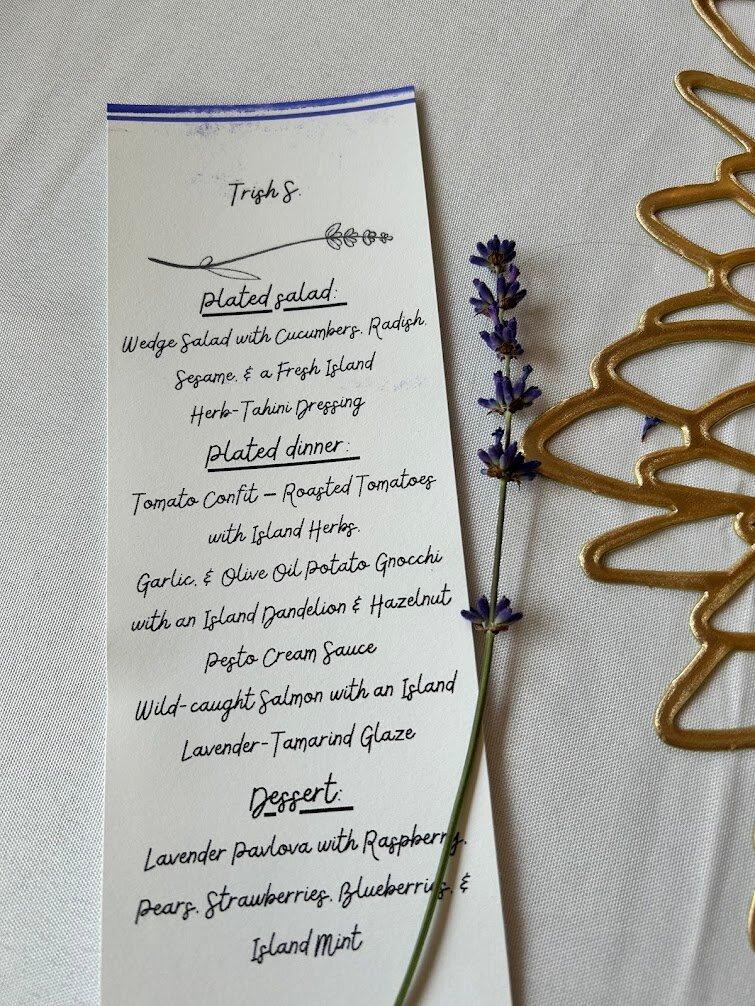 Trish S.
Plated salad:
Wedge Salad with Cucumbers, Radish,
Sesame, & a Fresh Island
Herb-Tahini Dressing
Plated dinner:
Tomato Confit – Roasted Tomatoes
with Island Herbs.
Garlic, & Olive Oil Potato Gnocchi
with an Island Dandelion & Hazelnut
Pesto Cream Sauce
Wild-caught Salmon with an Island
Lavender-Tamarind Glaze
Dessert:
Lavender Pavlova with Raspberry,
Pears, Strawberries, Blueberries, &
Island Mint